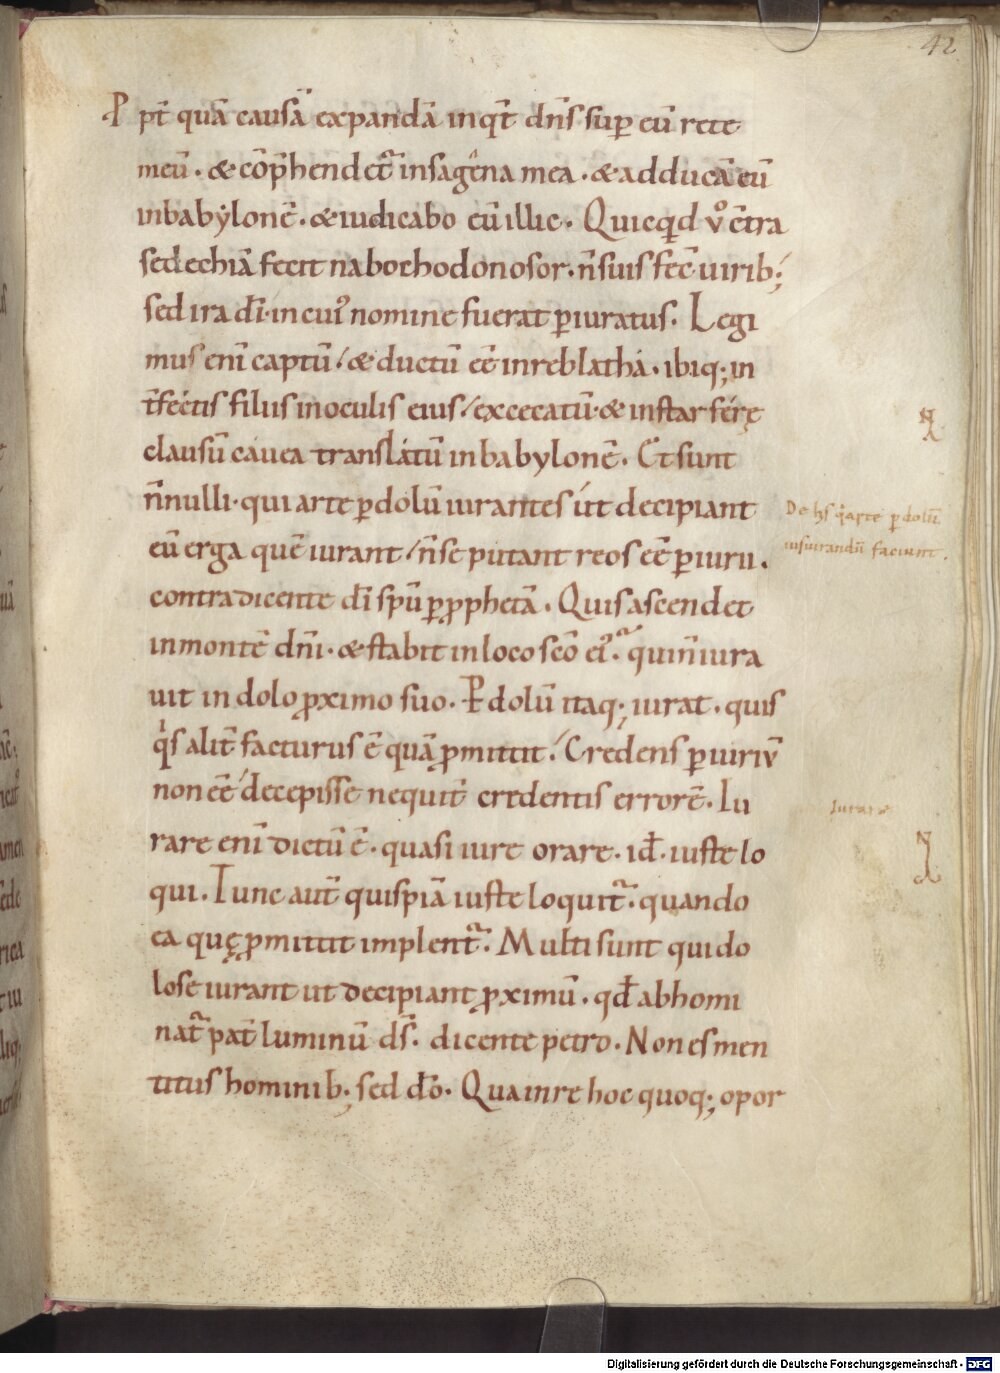 42
Ppt̄ quā causā expandā inqt̄ dn̄s sup eū rete
meū. & cōp̄hendet᷑ insagena mea. & adducā eū
inbabylonē. & iudicabo eū illic. Quicqͥd v̊ cc̄tra
sedechiā fecit nabochodonosor. n̄ suis fec̄ uirib;
sed ira dī. in cuiꝰ nomine fuerat ꝑiuratus. Legi
mus enī captū, & ductū eē inreblatha. ibiq; in
t̄fectis filiis inoculis eius, excecatū. & instar ferę
clausū cauea translatū inbabylonē. Et sunt
n̄nulli. qui arte ꝑ dolū iurantes ut decipiant
eū erga quē iurant, n̄ se putant reos eē ꝑiurii.
contradicente dī sp̄u ꝑ ꝓphetā. Quis ascendet
inmontē dn̄i. & stabit inloco sc̄o eiꝰ. qui n̄ iura
uit in dolo ꝓximo suo. P dolū itaq; iurat. quis
qͥs alit̄ facturus ē quā ꝓmittit. Credens ꝑiuriv̄
non eē, decepisse nequit̄ credentis errorē. Iu
rare enī dictū ē. quasi iure orare. id̄. iuste lo
qui. Tunc aut̄ quispiā iuste loquit᷑. quando
ea quę ꝓmittit implent᷑. Multi sunt qui do
lose iurant ut decipiant ꝓximū. qd̄ abhomi
nat᷑ pat̄ luminū ds̄. dicente petro. Non es men
titus hominib; sed dō. Qua inre hoc quoq; opor
De hıs qͥ arte ꝑ dolū
iusiurandū faciunt.
Iurare
Digitalisierung gefördert durch die Deutsche Forschungsgemeinschaft - DFG